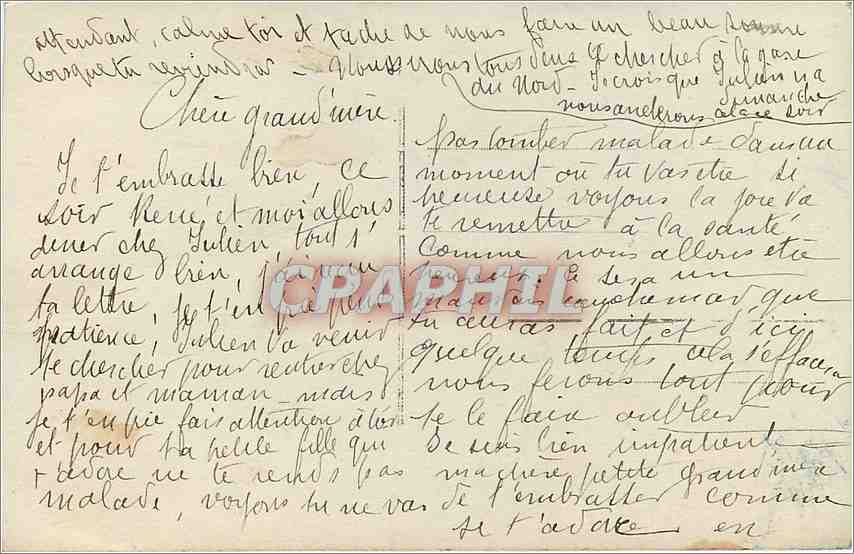 Chère grand'mère
Je t'embrasse bien, ce
soir René et moi allons
diner chez Julien, tout s'
arrange bien, j'ai vu
ta lettre, je t'en prie
patience, Julien va venir
te chercher pour rentrer chez
papa et maman mais
je t'en prie fais attention à toi
et pour ta petite fille qui
t'adore ne te rends pas
malade, voyons tu ne vas
pas tomber malade dans un
moment où tu vas etre si
heureuse voyons la joie va
te remettre à la santé
comme nous allons etre
heureux. Ce sera un
mauvais cauchemar que
tu auras fait et d'ici
quelque temps cela s'effacera
nous ferons tout pour
te le faire oublier
Je suis bien impatiente
ma chère petite grand'mère
de t'embrasser comme
je t'adore en
attendant, calme toi et tache de nous faire un beau
lorsque tu reviendras - Nous irons tous deux te chercher à la gare
du Nord - Je crois que Julien ira
dimanche
nous en ce soir
CRAPHIL